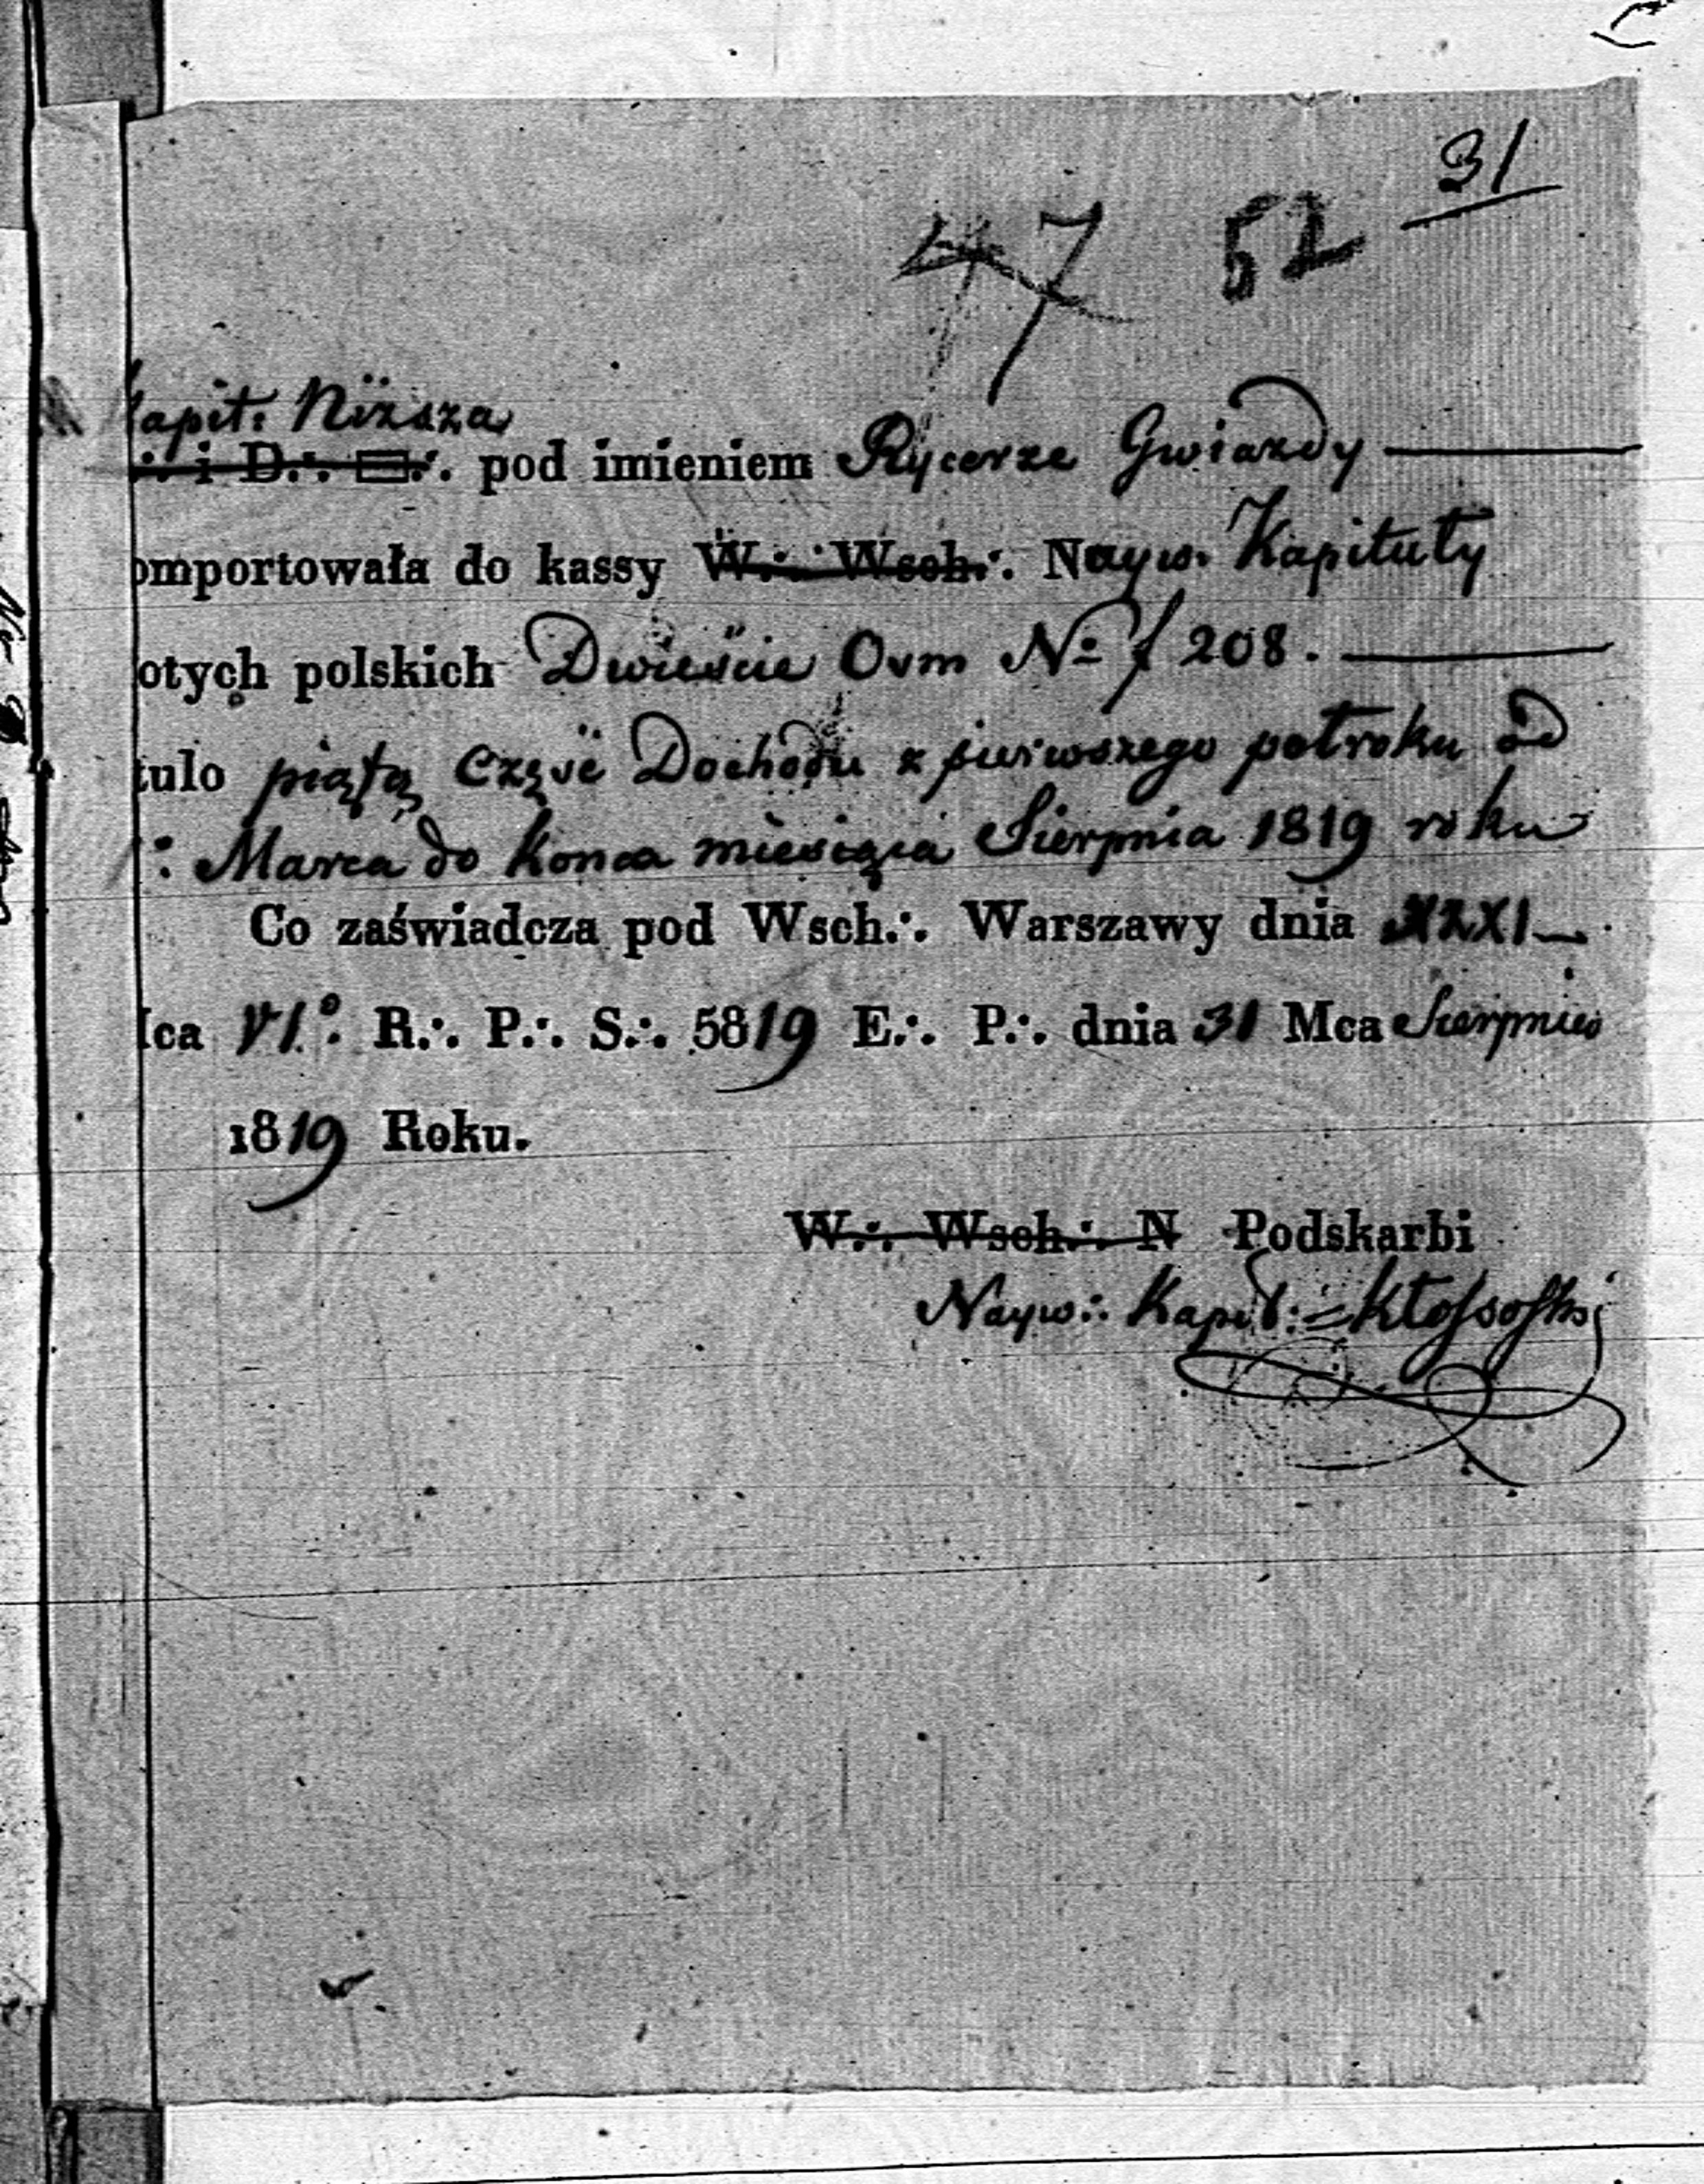 31
47 52
Kapit: Niższa
∴ i D∴ □∴ pod imieniem Rycerze Gwiazdy
omportowała do kassy W∴ Wsch∴ Nayw. Kapituły
otych polskich Dwieście Osm No f 208.
tulo piątą część Dochodu z pierwszego potroku od
: Marca do konca miesiąca Sierpnia 1819 roku
Co zaświadcza pod Wsch∴ Warszawy dnia XXXI
Mca VIo. R∴ P∴ S∴ 5819 E∴ P∴ dnia 31 Mca Sierpnia
1819 Roku.
W∴ Wsch∴ N Podskarbi
Nayw∴ Kapit: Kłossoski